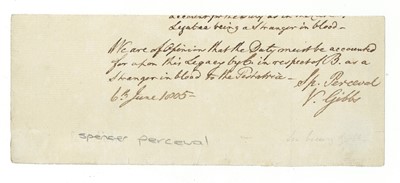 Legatee being a Stranger in blood—
We are of Opinion that the Duty must be accounted
for upon this Legacy by C. in respect of B. as a
Stranger in blood to the Testatrix—
Sp. Perceval
6th June 1805
V. Gibbs
spencer perceval